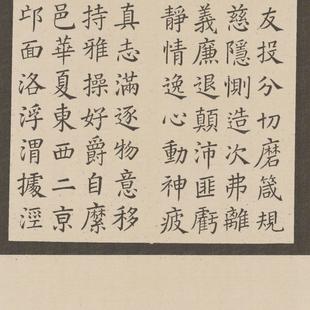 友投分切磨箴規
慈隱惻造次弗離
義廉退顛沛匪虧
靜情逸心動神疲
真志滿逐物意移
持雅操好爵自縻
邑華夏東西二亰
邙面洛浮渭據涇